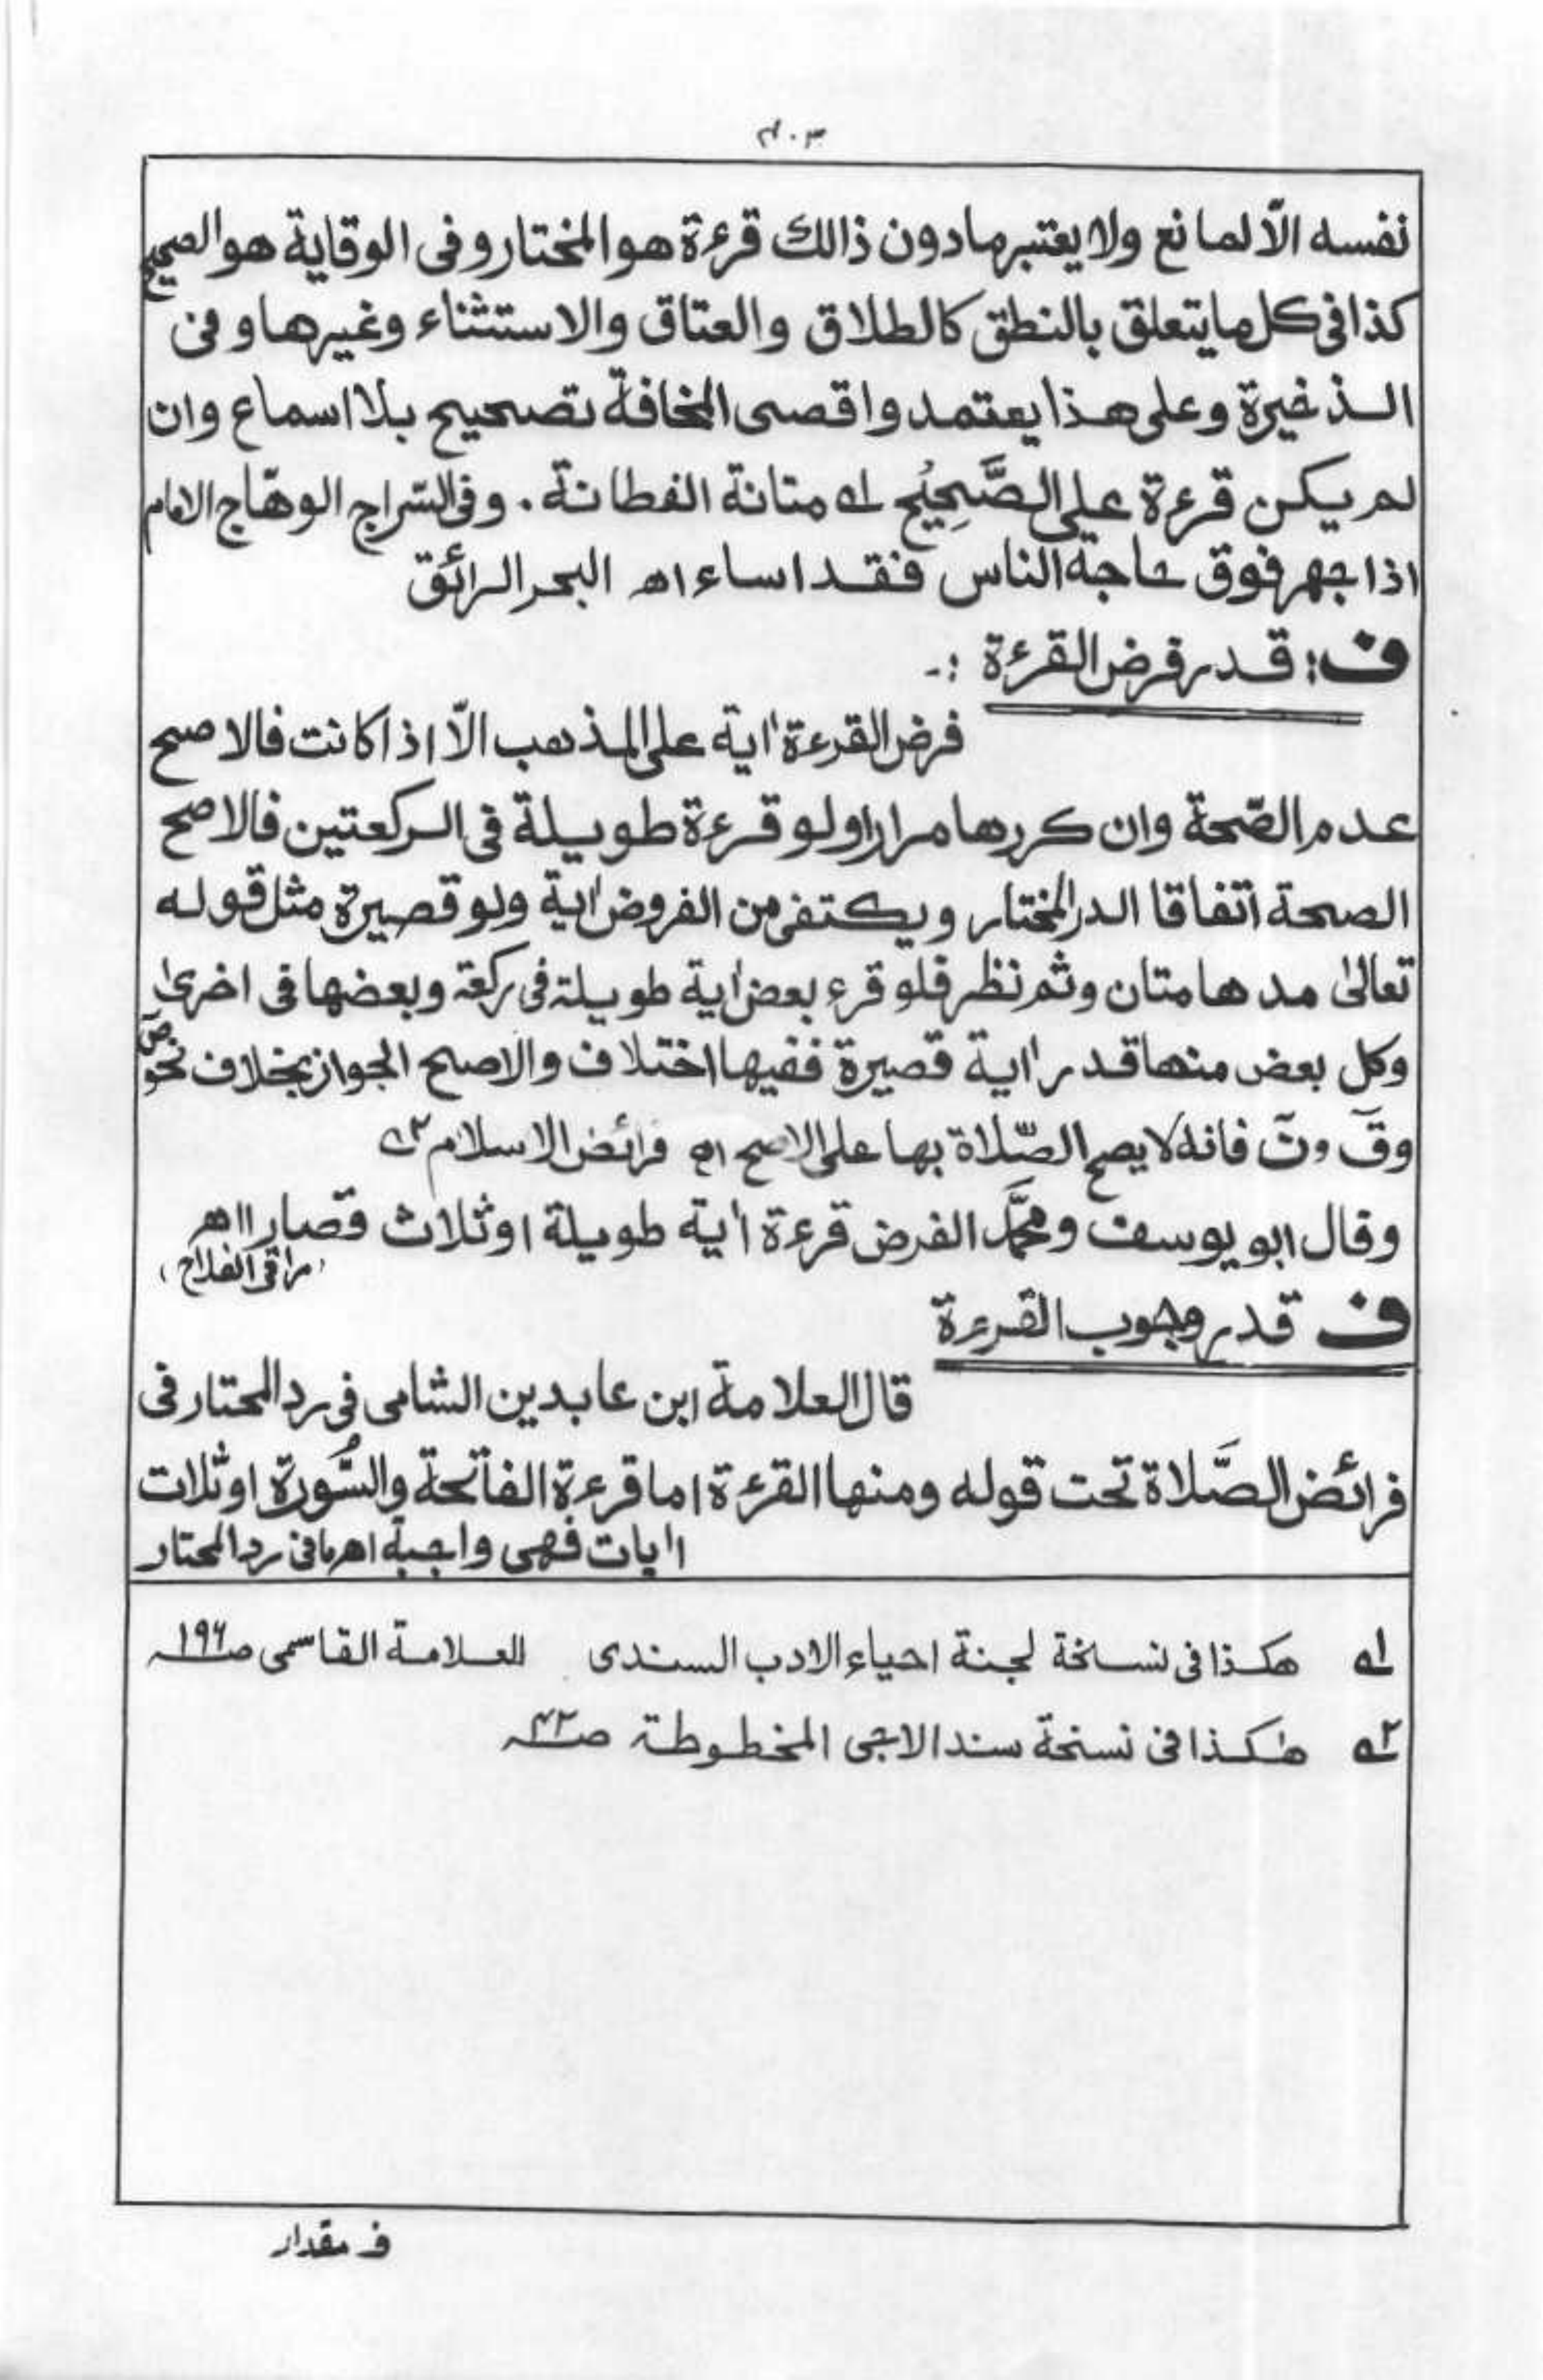 ٤٠٣
نفسه الّا لمانع ولا يعتبر مادون ذالك قرءة هو المختار وفى الوقاية هو الصحيح
كذا فى كل ما يتعلق بالنطق كالطلاق والعتاق والاستثناء وغيرها وفى
الذغيرة وعلى هذا يعتمد واقصى المخافة تصحيح بلا اسماع وان
لم يكن قرءة على الصَّحِيُح ١ـه متانة الفطانة. وفى السّراج الوهّاج الامام
اذا جهر فوق حاجة الناس فقد اساء اه البحر الرائق
ف: قدر فرض القرءة :-
فرض القرءة اٰية على المذهب الّا اذا كانت فالاصح
عدم الصّحة وان كررها مرارا ولو قرءة طويلة فى الركعتين فالاصح
الصحة اتفاقا الدر المختار ويكتفى من الفروض اٰية ولو قصيرة مثل قوله
تعالىٰ مدهامتان وثم نظر فلو قرء بعض اٰية طويلة فى ركعة وبعضها فى اخرىٰ
وكل بعض منها قدر اٰية قصيرة ففيها اختلاف والاصح الجواز بخلاف نحو صٓ
وقٓ ونٓ فانه لا يصح الصّلاة بها على الاصح اه فرائض الاسلام ٢ـه
وقال ابو يوسف ومحمَّد الفرض قرءة اٰية طويلة او ثلاث قصار ااهـ
(مراقى الفلاح)
ف قدر وجوب القرءة
قال العلامة ابن عابدين الشامى فى رد المحتار فى
فرائض الصَّلاة تحت قوله ومنها القرءة اما قرءة الفاتحة والسُّورة او ثلاث
اٰيات فهى واجبة اهـ مافى رد المحتار
١ـه هكذا فى نسخة لجنة احياء الادب السندى للعلامة القاسمى صـ١٩٦
٢ـه هٰكذا فى نسخة سندالاجى المخطوطة صـ٤٢
ف مقدار